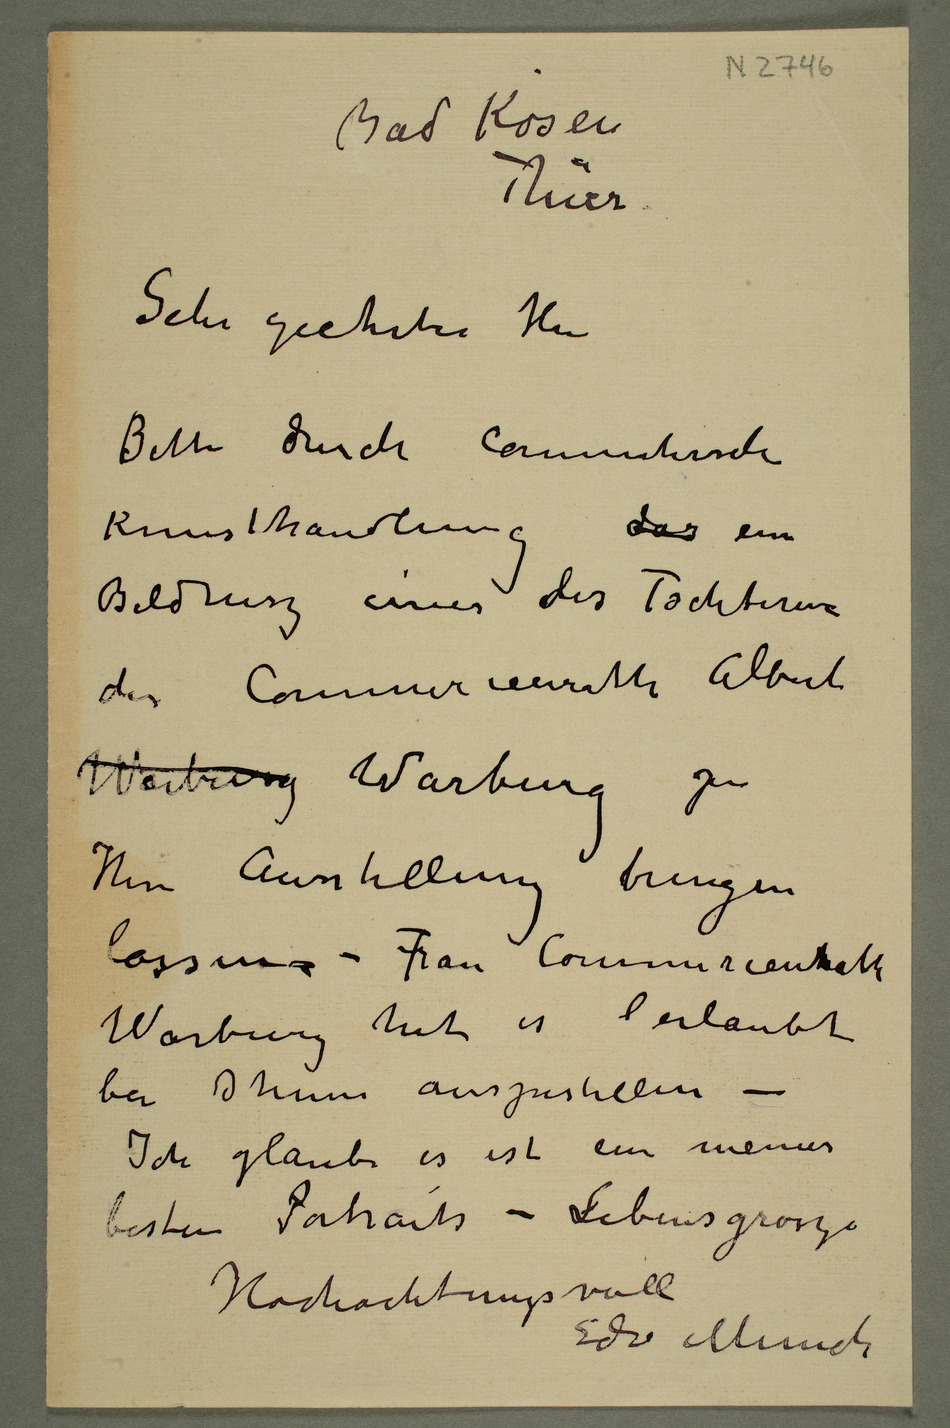 N 2746
Bad Kösen
Thür.
Sehr geehrter Herr
Bitte durch Commetersche
Kunsthandlung das ein
Bildnisz einer der Töchteren
des Commercienrath Albert
Warburg Warburg zu
Ihre Ausstellung bringen
lassen – Frau Commercienrath
Warburg hat es erlaubt
bei Ihnen auszustellen —
Ich glaube es ist ein meiner
besten Portraits – Lebensgrosze
Hochachtungsvoll
Edv Munch